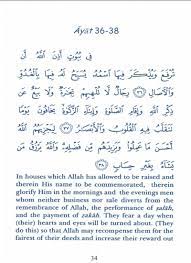 Āyāt 36-38
فِي بُيُوتٍ أَذِنَ اللَّهُ أَن
تُرْفَعَ وَيُذْكَرَ فِيهَا اسْمُهُ يُسَبِّحُ لَهُ فِيهَا بِالْغُدُوِّ
وَالْآصَالِ ﴿٣٦﴾ رِجَالٌ لَّا تُلْهِيهِمْ تِجَارَةٌ وَلَا بَيْعٌ عَن
ذِكْرِ اللَّهِ وَإِقَامِ الصَّلَاةِ وَإِيتَاءِ الزَّكَاةِ يَخَافُونَ يَوْمًا
تَتَقَلَّبُ فِيهِ الْقُلُوبُ وَالْأَبْصَارُ ﴿٣٧﴾ لِيَجْزِيَهُمُ اللَّهُ
أَحْسَنَ مَا عَمِلُوا وَيَزِيدَهُم مِّن فَضْلِهِ وَاللَّهُ يَرْزُقُ مَن
يَشَاءُ بِغَيْرِ حِسَابٍ ﴿٣٨﴾
In houses which Allah has allowed to be raised and
therein His name to be commemorated, therein
glorify Him in the mornings and the evenings men
whom neither business nor sale diverts from the
remembrance of Allah, the performance of salāt,
and the payment of zakāh. They fear a day when
(their) hearts and eyes will be turned about. (They
do this) so that Allah may recompense them for the
fairest of their deeds and increase their reward out
34